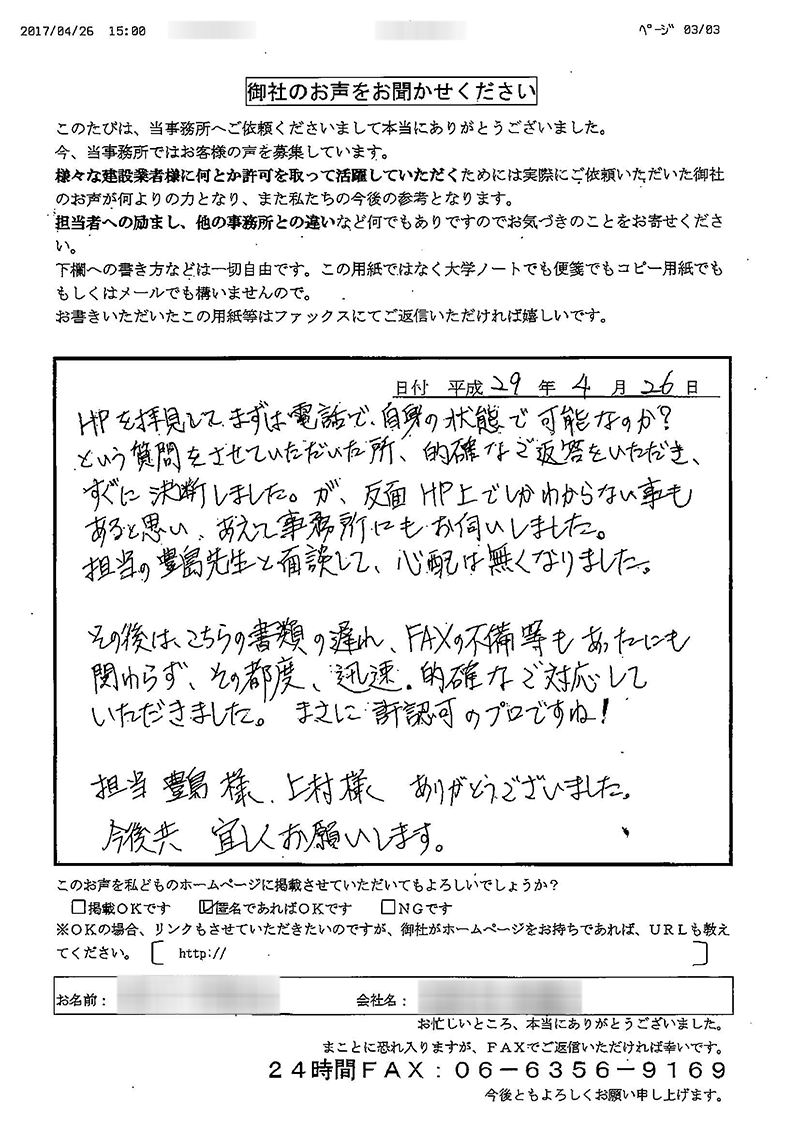 2017/04/26 15:00
ﾍﾟｰｼﾞ 03/03
御社のお声をお聞かせください
このたびは、当事務所へご依頼くださいまして本当にありがとうございました。
今、当事務所ではお客様の声を募集しています。
様々な建設業者様に何とか許可を取って活躍していただくためには実際にご依頼いただいた御社
のお声が何よりの力となり、また私たちの今後の参考となります。
担当者への励まし、他の事務所との違いなど何でもありですのでお気づきのことをお寄せくださ
い。
下欄への書き方などは一切自由です。この用紙ではなく大学ノートでも便箋でもコピー用紙でも
もしくはメールでも構いませんので。
お書きいただいたこの用紙等はファックスにてご返信いただければ嬉しいです。
日付 平成 29 年 4 月 26 日
HPを拝見して、まずは電話で、自身の状態で可能なのか?
という質問をさせていただいた所、的確なご返答をいただき、
すぐに決断しました。が、反面HP上でしかわからない事も
あると思い、あえて事務所にもお伺いしました。
担当の豊島先生と面談して、心配は無くなりました。
その後は、こちらの書類の遅れ、FAXの不備等もあったにも
関わらず、その都度、迅速・的確なご対応して
いただきました。まさに許認可のプロですね!
担当 豊島様、上村様 ありがとうございました。
今後共 宜しくお願いします。
このお声を私どものホームページに掲載させていただいてもよろしいでしょうか？
□掲載OKです ☑匿名であればOKです □NGです
※OKの場合、リンクもさせていただきたいのですが、御社がホームページをお持ちであれば、URLも教え
てください。 [ http:// ]
お名前： 会社名：
お忙しいところ、本当にありがとうございました。
まことに恐れ入りますが、FAXでご返信いただければ幸いです。
24時間FAX：06-6356-9169
今後ともよろしくお願い申し上げます。